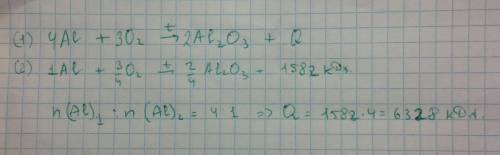 (1) 4Al + 3O₂ →ᵗ 2Al₂O₃ + Q
(2) 1Al + 3/4 O₂ →ᵗ 2/4 Al₂O₃ - 1582 кДж
n(Al)₁ : n(Al)₂ = 4 1 => Q = 1582·4 = 6328 кДж.